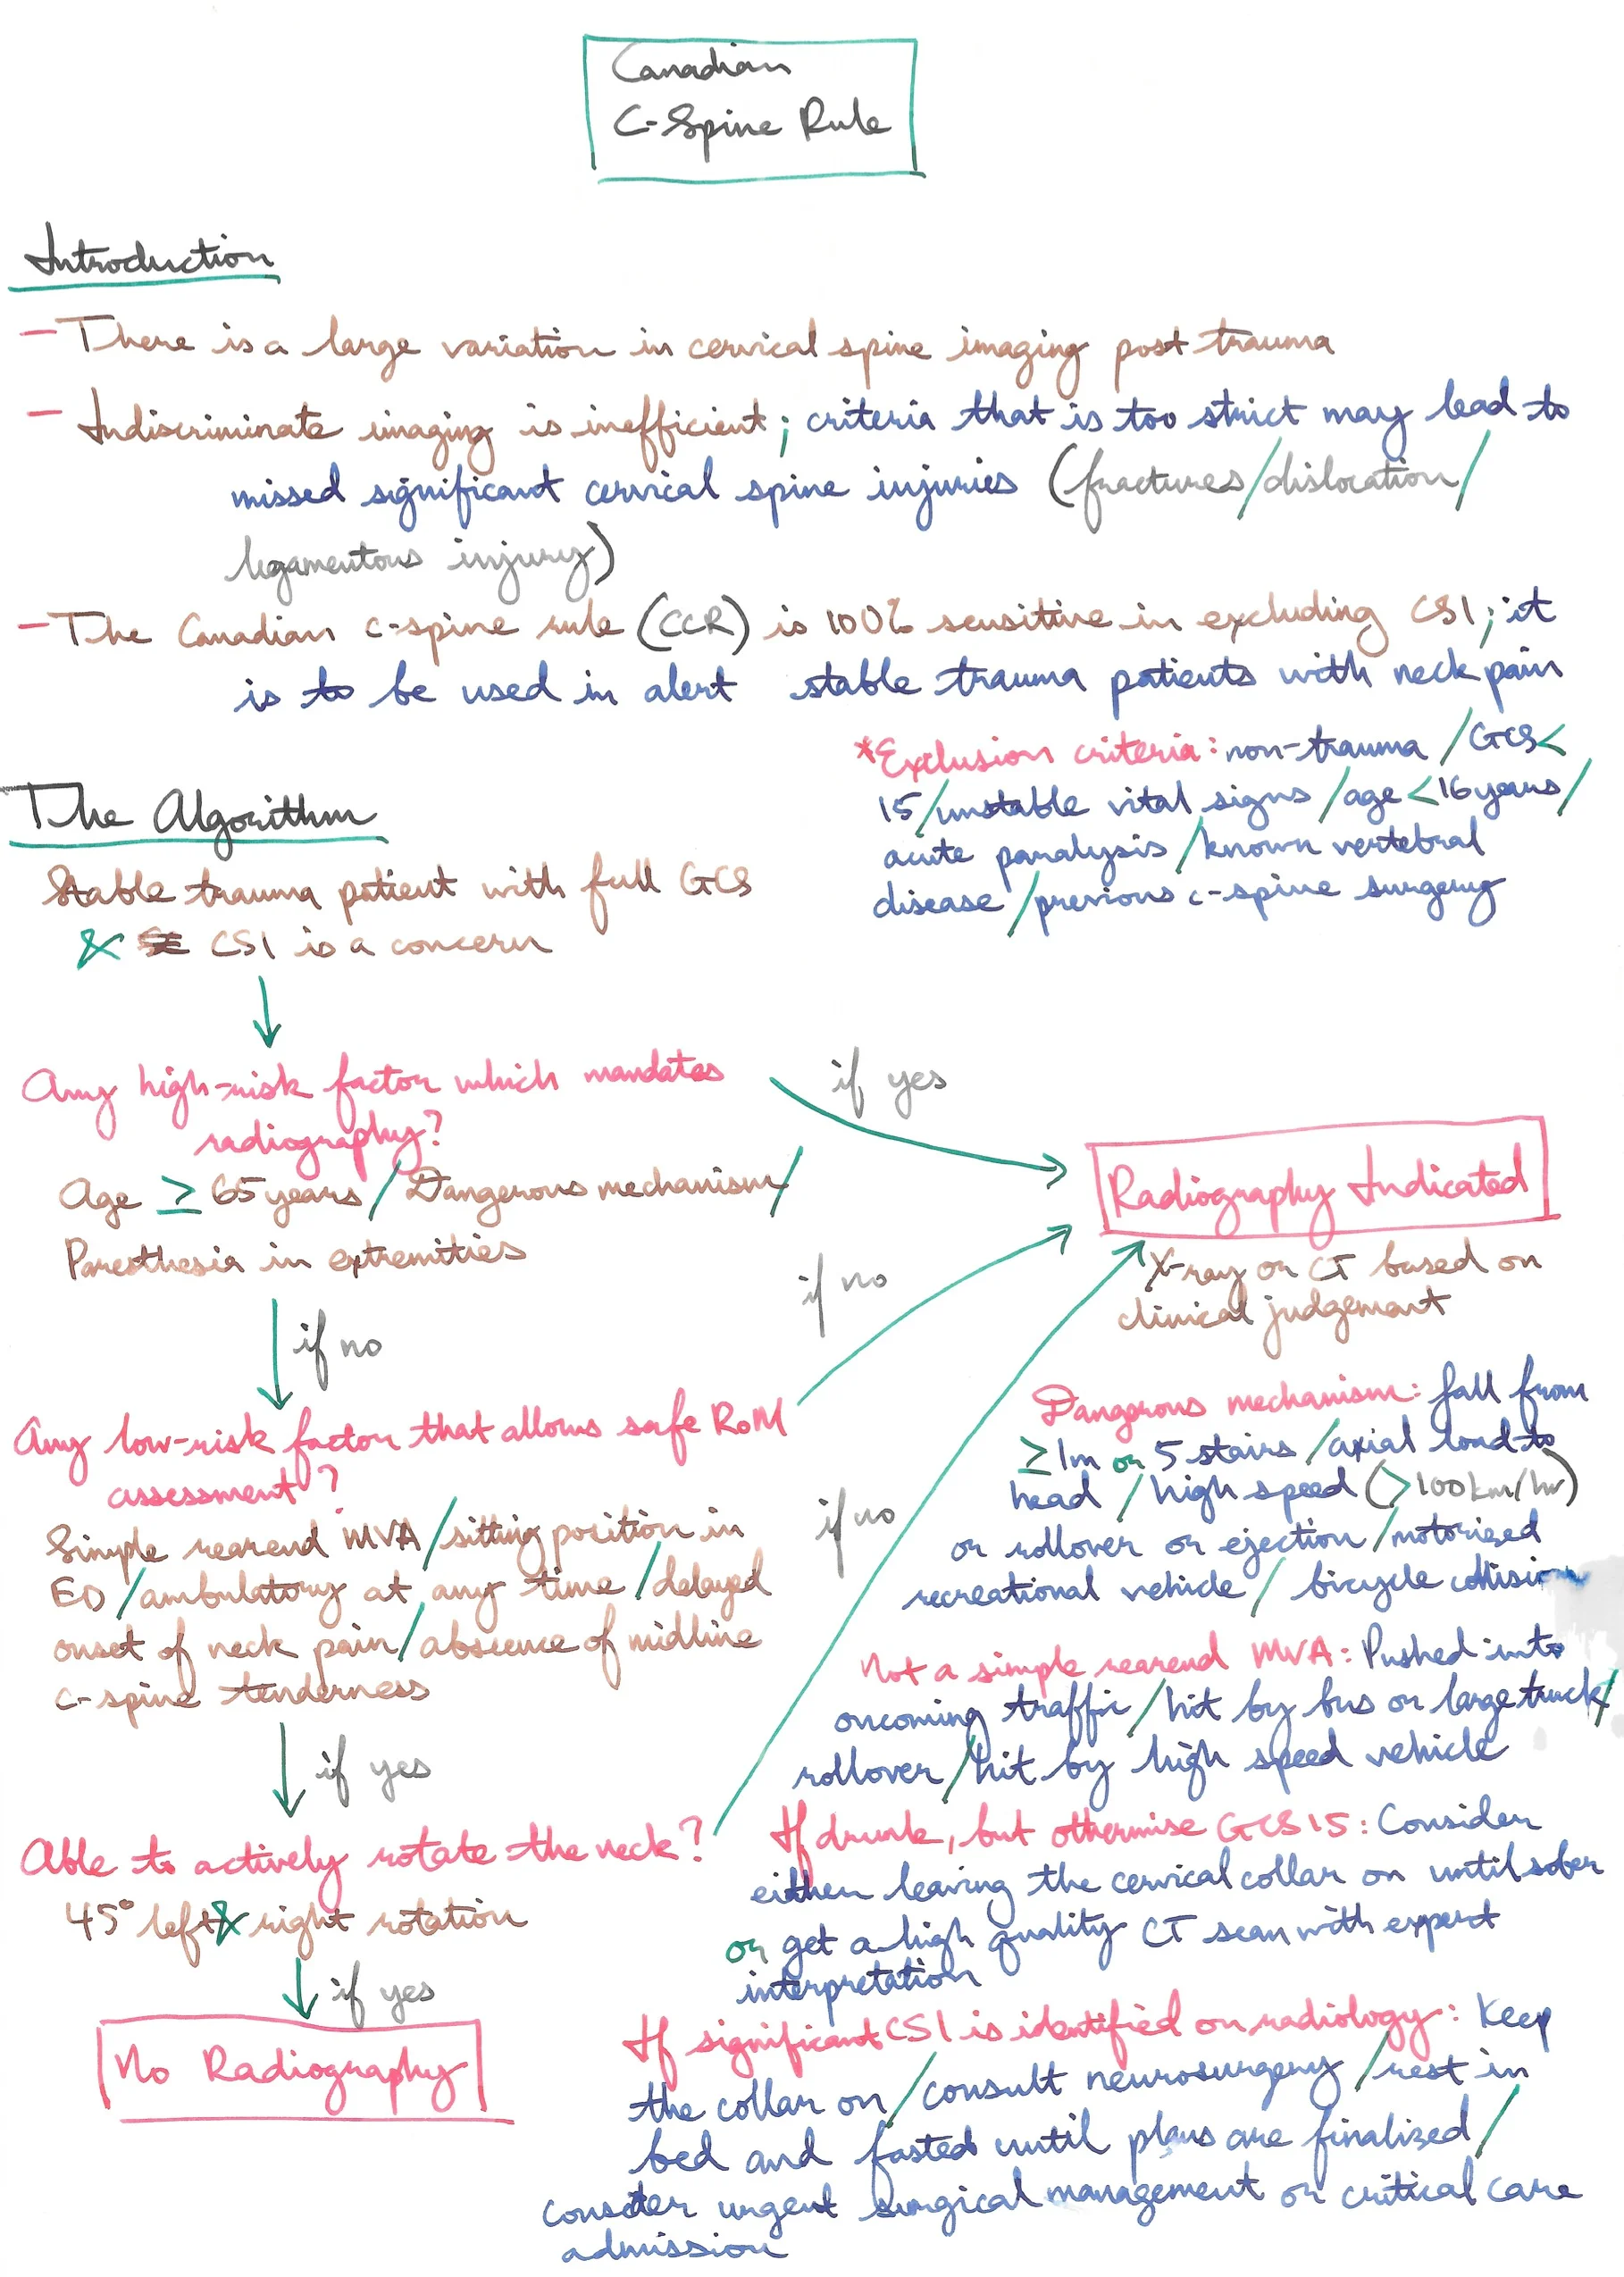 Canadian
C-Spine Rule
Introduction
- There is a large variation in cervical spine imaging post trauma
- Indiscriminate imaging is inefficient; criteria that is too strict may lead to
missed significant cervical spine injuries (fractures/dislocation/
ligamentous injury)
- The Canadian c-spine rule (CCR) is 100% sensitive in excluding CSI; it
is to be used in alert stable trauma patients with neck pain
*Exclusion criteria: non-trauma / GCS <
15/unstable vital signs /age <16 years/
acute paralysis /known vertebral
disease /previous c-spine surgery
The Algorithm
Stable trauma patient with full GCS
& CSI is a concern
Any high-risk factor which mandates
radiography?
Age ≥ 65 years / Dangerous mechanism/
Paresthesia in extremities
if yes
Radiography Indicated
X-ray or CT based on
clinical judgement
if no
if no
Any low-risk factor that allows safe ROM
assessment?
Simple rearend MVA/sitting position in
ED/ambulatory at any time/delayed
onset of neck pain/absence of midline
c-spine tenderness
if no
if yes
Able to actively rotate the neck?
45° left & right rotation
if yes
No Radiography
Dangerous mechanism: fall from
≥1m or 5 stairs /axial load to
head /high speed (>100km/hr)
or rollover or ejection /motorized
recreational vehicle / bicycle collision
Not a simple rearend MVA: Pushed into
oncoming traffic/hit by bus or large truck/
rollover/hit by high speed vehicle
If drunk, but otherwise GCS 15: Consider
either leaving the cervical collar on until sober
or get a high quality CT scan with expert
interpretation
If significant CSI is identified on radiology: Keep
the collar on /consult neurosurgery /rest in
bed and fasted until plans are finalized/
consider urgent surgical management or critical care
admission